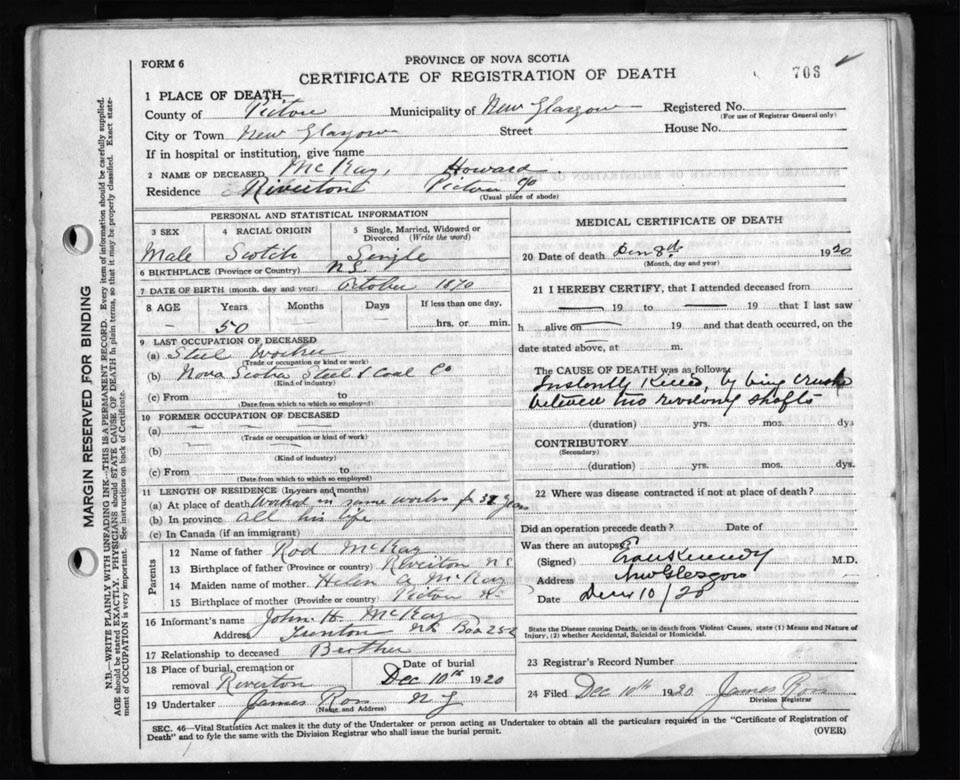 FORM 6
PROVINCE OF NOVA SCOTIA
CERTIFICATE OF REGISTRATION OF DEATH—
708
1 PLACE OF DEATH—
County of Pictou Municipality of New Glasgow Registered No.
(For use of Registrar General only)
City or Town New Glasgow Street House No.
If in hospital or institution, give name
2 NAME OF DECEASED McKay, Howard
Residence Riverton Pictou Co
(Usual place of abode)
PERSONAL AND STATISTICAL INFORMATION
3 SEX 4 RACIAL ORIGIN 5 Single, Married, Widowed or Divorced (Write the word)
Male Scotch Single
6 BIRTHPLACE (Province or Country) N.S.
7 DATE OF BIRTH (month, day and year) October 1870
8 AGE Years Months Days If less than one day,
50 hrs. or min.
9 LAST OCCUPATION OF DECEASED
(a) Steel Worker
(Trade or occupation or kind or work)
(b) Nova Scotia Steel & Coal Co
(Kind of industry)
(c) From to
(Date from which to which so employed)
10 FORMER OCCUPATION OF DECEASED
(a)
(Trade or occupation or kind of work)
(b)
(Kind of industry)
(c) From to
(Date from which to which so employed)
11 LENGTH OF RESIDENCE (In years and months)
(a) At place of death Worked in same works for years
(b) In province all his life
(c) In Canada (if an immigrant)
Parents
12 Name of father Rod McKay
13 Birthplace of father (Province or country) Riverton N.S
14 Maiden name of mother Helen A McKay
15 Birthplace of mother (Province or country) Pictou
16 Informant's name John H. McKay
Address Trenton NS Box
17 Relationship to deceased Brother
18 Place of burial, cremation or removal Riverton
Date of burial Dec 10th 1920
19 Undertaker James Ross N G
(Name and Address)
MEDICAL CERTIFICATE OF DEATH
20 Date of death 1920
(Month, day and year)
21 I HEREBY CERTIFY, that I attended deceased from
19 to 19 that I last saw
h alive on 19 and that death occurred, on the
date stated above, at m.
The CAUSE OF DEATH was as follows:
Instantly Killed, by being crushed
between two revolving shafts
(duration) yrs. mos. dys
CONTRIBUTORY
(Secondary)
(duration) yrs. mos. dys.
22 Where was disease contracted if not at place of death?
Did an operation precede death? Date of
Was there an autopsy?
(Signed) Kennedy M.D.
Address New Glasgow
Date Dec 10/20
State the Disease causing Death, or in death from Violent Causes, state (1) Means and Nature of
Injury, (2) whether Accidental, Suicidal or Homicidal.
23 Registrar's Record Number
24 Filed Dec 10th 1920 James Ross
Division Registrar
SEC. 46—Vital Statistics Act makes it the duty of the Undertaker or person acting as Undertaker to obtain all the particulars required in the "Certificate of Registration of
Death" and to fyle the same with the Division Registrar who shall issue the burial permit.
(OVER)
MARGIN RESERVED FOR BINDING
N.B.—WRITE PLAINLY WITH UNFADING INK—THIS IS A PERMANENT RECORD. Every item of information should be carefully supplied.
AGE should be stated EXACTLY. PHYSICIANS should STATE CAUSE OF DEATH in plain terms, so that it may be properly classified. Exact statement
of OCCUPATION is very important. See instructions on back of Certificate.